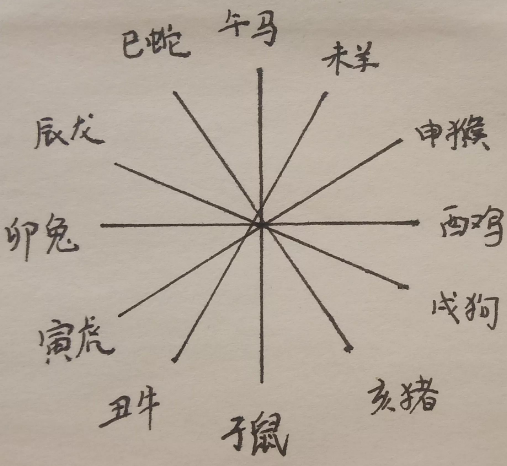 午马
巳蛇
未羊
辰龙
申猴
卯兔
酉鸡
寅虎
戌狗
丑牛
亥猪
子鼠